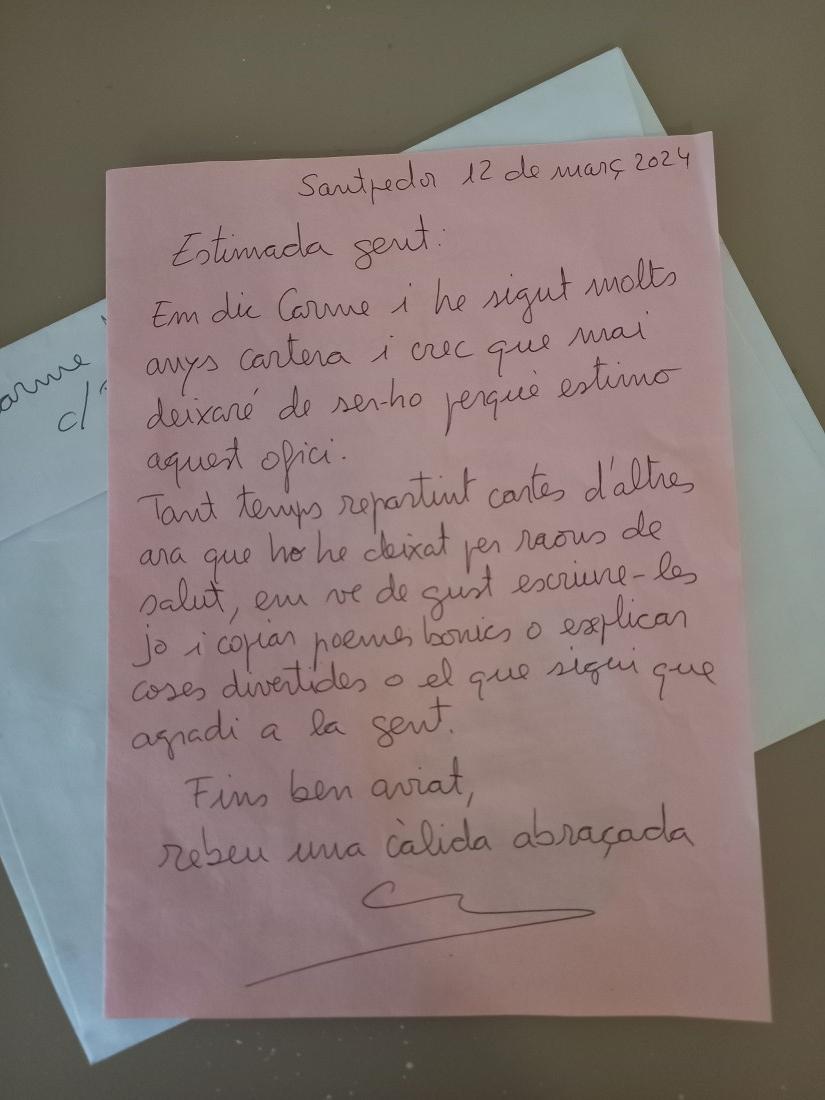 Santpedor 12 de març 2024
Estimada gent:
Em dic Carme i he sigut molts
anys cartera i crec que mai
deixaré de ser-ho perquè estimo
aquest ofici.
Tant temps repartint cartes d'altres
ara que ho he deixat per raons de
salut, em ve de gust escriure-les
jo i copiar poemes bonics o explicar
coses divertides o el que sigui que
agradi a la gent.
Fins ben aviat,
rebeu una càlida abraçada
arme
c/